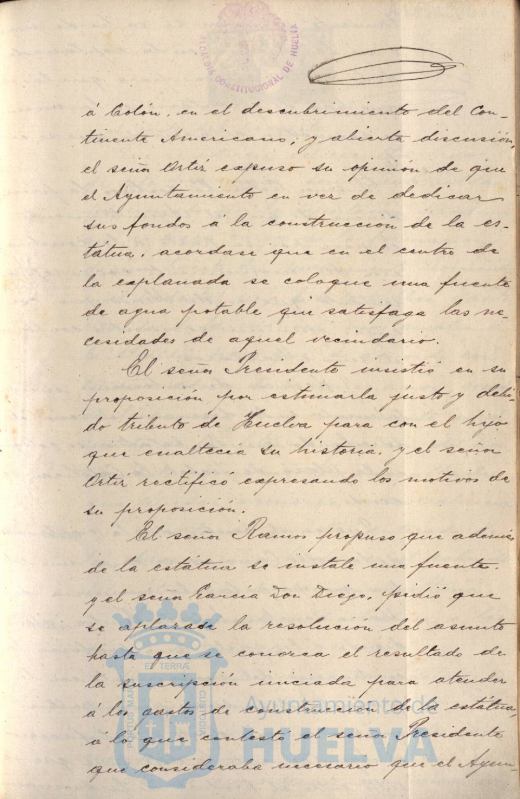 ALCALDIA CONSTITUCIONAL DE HUELVA
á Colón, en el descubrimiento del Con-
tinente Americano; y abierta discusión,
el señor Ortiz expuso su opinión de que
el Ayuntamiento en vez de dedicar
sus fondos á la construcción de la es-
tátua, acordase que en el centro de
la explanada se coloque una fuente
de agua potable que satisfaga las ne-
cesidades de aquel vecindario.
El señor Presidente insistió en su
proposición por estimarla justo y debi-
do tributo de Huelva para con el hijo
que enaltecia su historia, y el señor
Ortiz rectificó expresando los motivos de
su proposición.
El señor Ramos propuso que además
de la estátua se instale una fuente.
y el señor García Don Diego, pidió que
se aplazase la resolución del asunto
hasta que se conozca el resultado de
la suscripción iniciada para atender
á los gastos de construcción de la estátua,
á lo que contestó el señor Presidente
que consideraba necesario que el Ayun-
PORTUS MARIS ET TERRÆ CUSTODIA
Ayuntamiento de
HUELVA